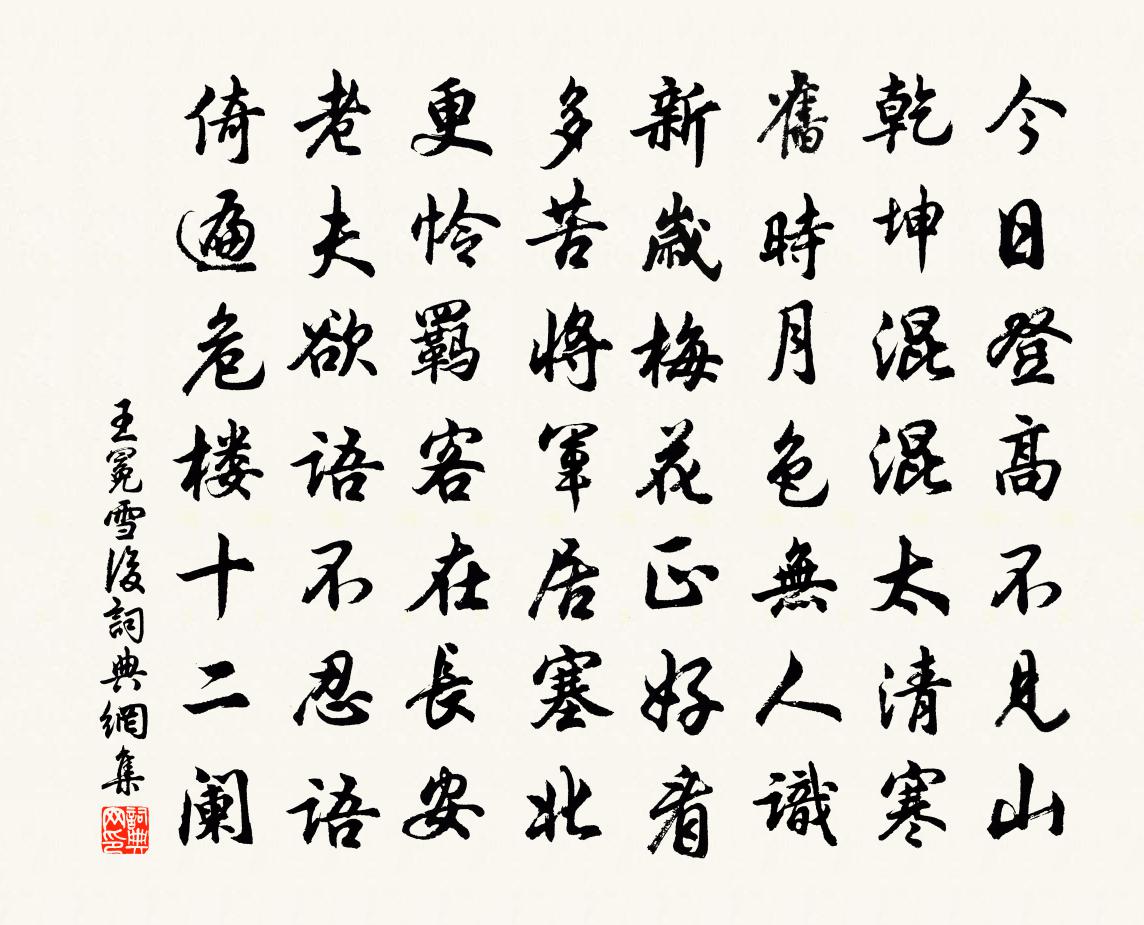 今日登高不見山
乾坤混混太清寒
舊時月色無人識
新歲梅花正好看
多苦將軍居塞北
更憐羈客在長安
老夫欲語不忍語
倚遍危楼十二阑
王冕雪後詞典網集
詞典网印